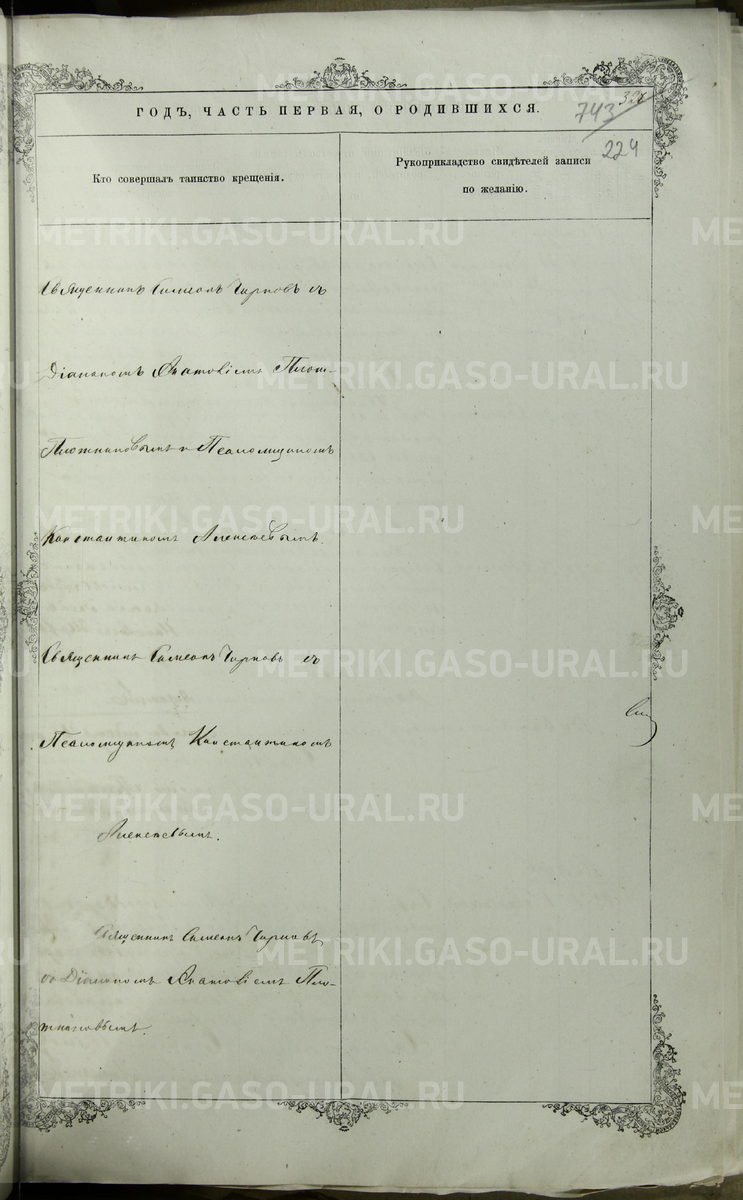 ГОДЪ, ЧАСТЬ ПЕРВАЯ, О РОДИВШИХСЯ.
743
224
Кто совершалъ таинство крещенія.
Рукоприкладство свидѣтелей записи
по желанію.
Священникъ Симеонъ Чирковъ съ
Діакономъ Пот-
Плотниковымъ и Псаломщикомъ
Константиномъ Алексѣевымъ.
Священникъ Симеонъ Чирковъ съ
Псаломщикомъ Константиномъ
Алексѣевымъ.
Священникъ Симеонъ Чирковъ
со Діакономъ Пло-
тниковымъ.
METRIKI.GASO-URAL.RU